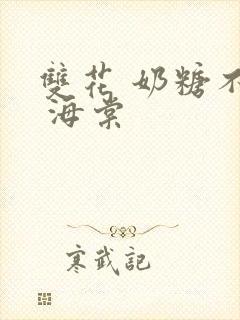 雙花 奶糖不
海棠
寒武記